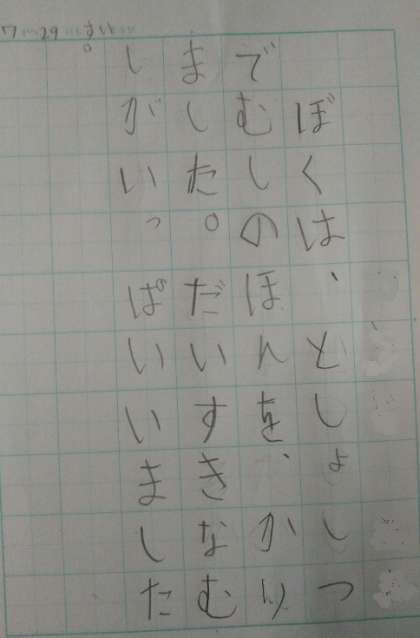 7…29…すい…
ぼくは、としょしつ
でむしのほんを、かり
ました。だいすきなむ
しがいっぱいいました
。